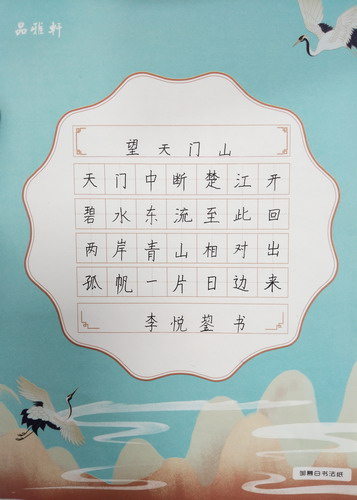 品雅轩
望天门山
天门中断楚江开
碧水东流至此回
两岸青山相对出
孤帆一片日边来
李悦蓥书